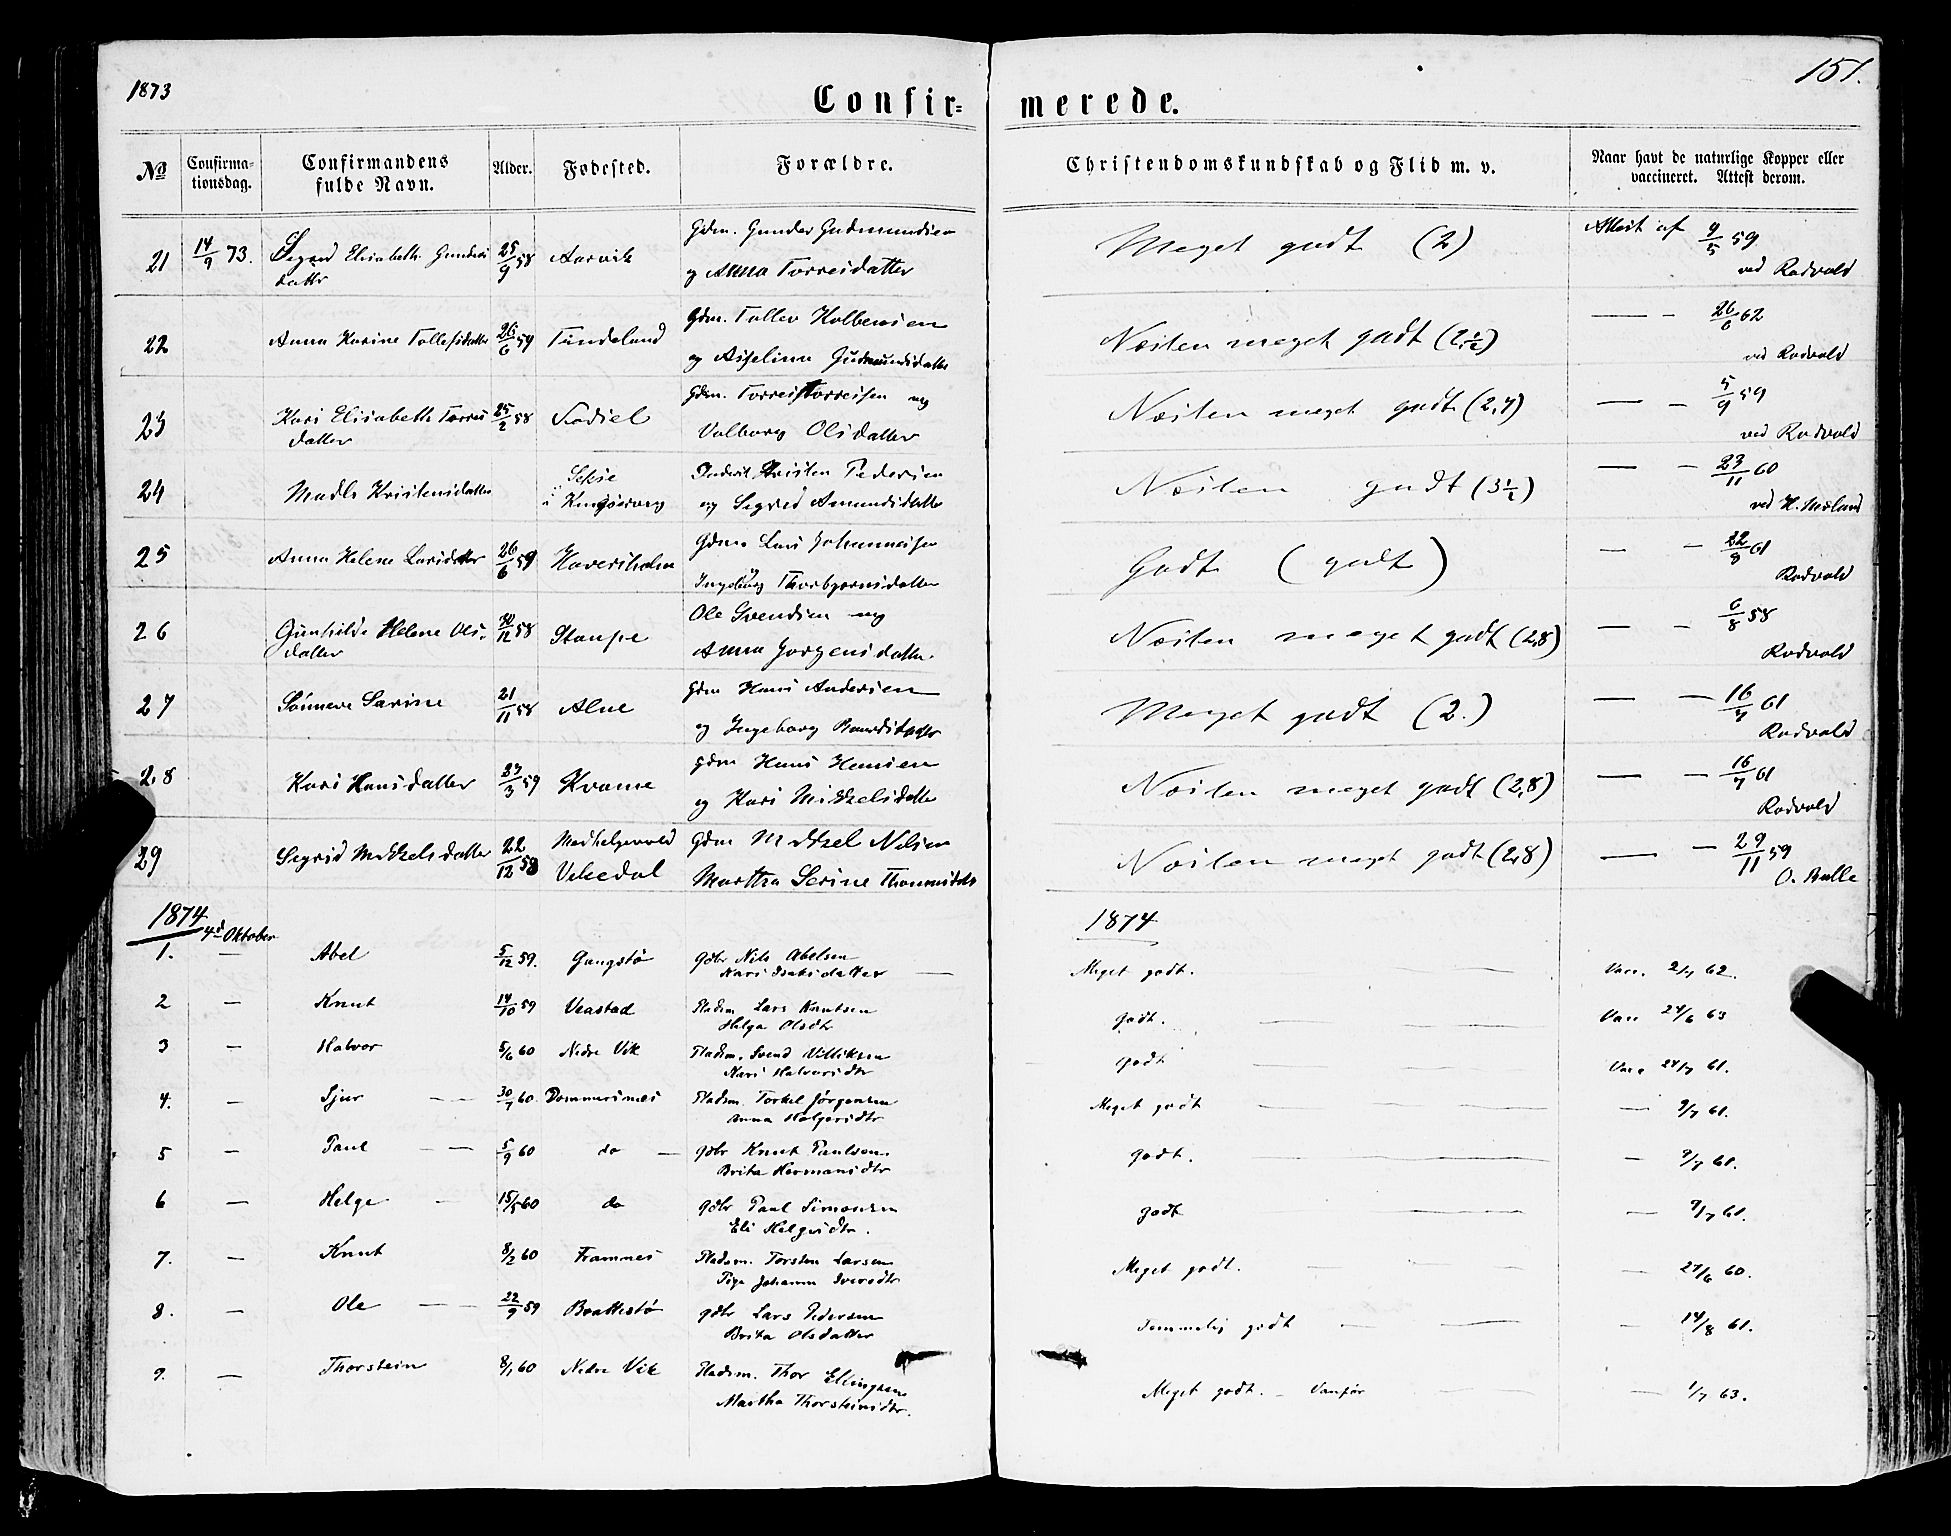 1873
151.
Confir- merede.
No
Confirmationsdag.
Confirmandens fulde Navn.
Alder.
Fødested.
Forældre.
Christendomskundskab og Flid m. v.
Naar havt de naturlige Kopper eller vaccineret. Attest derom.
21 14/9 73. Sigrid Elisabeth Gunders 25/9 58 Aarvik Gdm. Gunder Gudmundsen Meget godt (2) Attest af 9/5 59
datter og Anna Torresdatter ved Rødvold
22 Anna Karine Tollefsdatter 26/6 59 Tindeland Gdm. Tollev Kolbensen Næsten meget godt (2,½) — - 26/6 62
og Asseline Gudmundsdatter ved Rødvold
23 Kari Elisabeth Torres 25/2 58 Sødiel Gdm. Torres Torresen og Næsten meget godt (2,4) — - 5/9 59
datter Valborg Olsdatter ved Rødvold
24 Madle Kristensdatter Kristen Pedersen Næsten godt (3½) — - 23/11 60
og Sigrid Amundsdatter ved H. Mæland
25 Anna Helene Larsdatter 26/6 59 Haversholm Gdm Lars Johannessen Godt (godt) — - 22/9 61
Ingeborg Thorbjørnsdatter Rødvold
26 Gunhilde Helene Ols- 30/12 58 Stoupe Ole Svendsen og Næsten meget godt (2,8) — - 6/8 58
datter Anna Jørgensdatter. Rødvold
27 Sønneve Sarine 21/11 58 Alne Gdm Hans Andersen Meget godt (2.) — - 16/7 61
og Ingeborg Rødvold
28 Kari Hansdatter 27/3 59 Kvame gdm Hans Hansen Næsten meget godt (2,8) — - 16/7 61
og Kari Mikkelsdatter Rødvold
29 Sigrid Mikkelsdatter 22/12 58 Vikedal Gdm Mikkel Nilsen Næsten meget godt (2,8) — - 29/11 59
Marttha Serine O. Balle
1874 4d Oktober 1874
1. — Abel 5/12 59. Gangstø gdbr Nils Abelsen Meget godt. Vacc. 2/7 62.
Kari Isaksdatter
2 — Knut 14/10 59 Veastad Pladsm Lars Knutsen godt. Vacc 24/6 63
Helga Olsdtr
3 — Halvor 5/6 60 Nedre Vik Pladsm. Svend Villiksen godt Vacc 24/7 61.
Kari Halvorsdtr
4. — Sjur 30/7 60. Dommersnes Pladsm. Torkel Jørgensen Meget godt — 9/7 61.
Anna Holgersdtr
5 — Paul 5/9 60 do — gdbr Knut Paulsen. godt. — 9/7 61.
Brita Hermansdtr
6 — Helge 15/5 60 do gdbr Paul Simonsen godt — 9/7 61.
Eli Helgesdtr.
7. — Knut 8/2 60 Framnes Pladsm. Torsten Larsen Meget godt. — 27/6 60.
Pige Johanna Iversdtr
8. — Ole 22/9 59 Brattestø gdbr Lars Pedersen Temmelig godt — 14/8 61.
Brita Olsdatter
9. — Thorstein 8/1 60 Nedre Vik Pladsm. Thor Ellingsen Meget godt. - Vanfør — 1/7 63.
Martha Thorsteinsdtr.